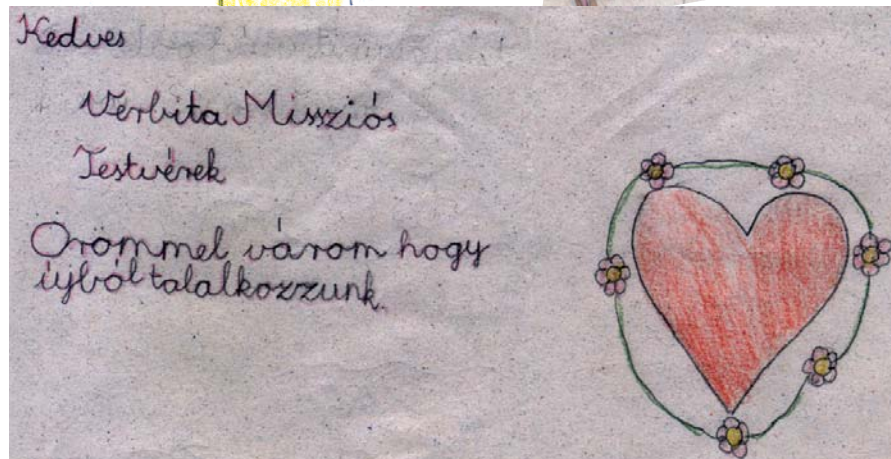 Kedves
Verbita Missziós
Testvérek
Örömmel várom hogy
újból talalkozzunk.